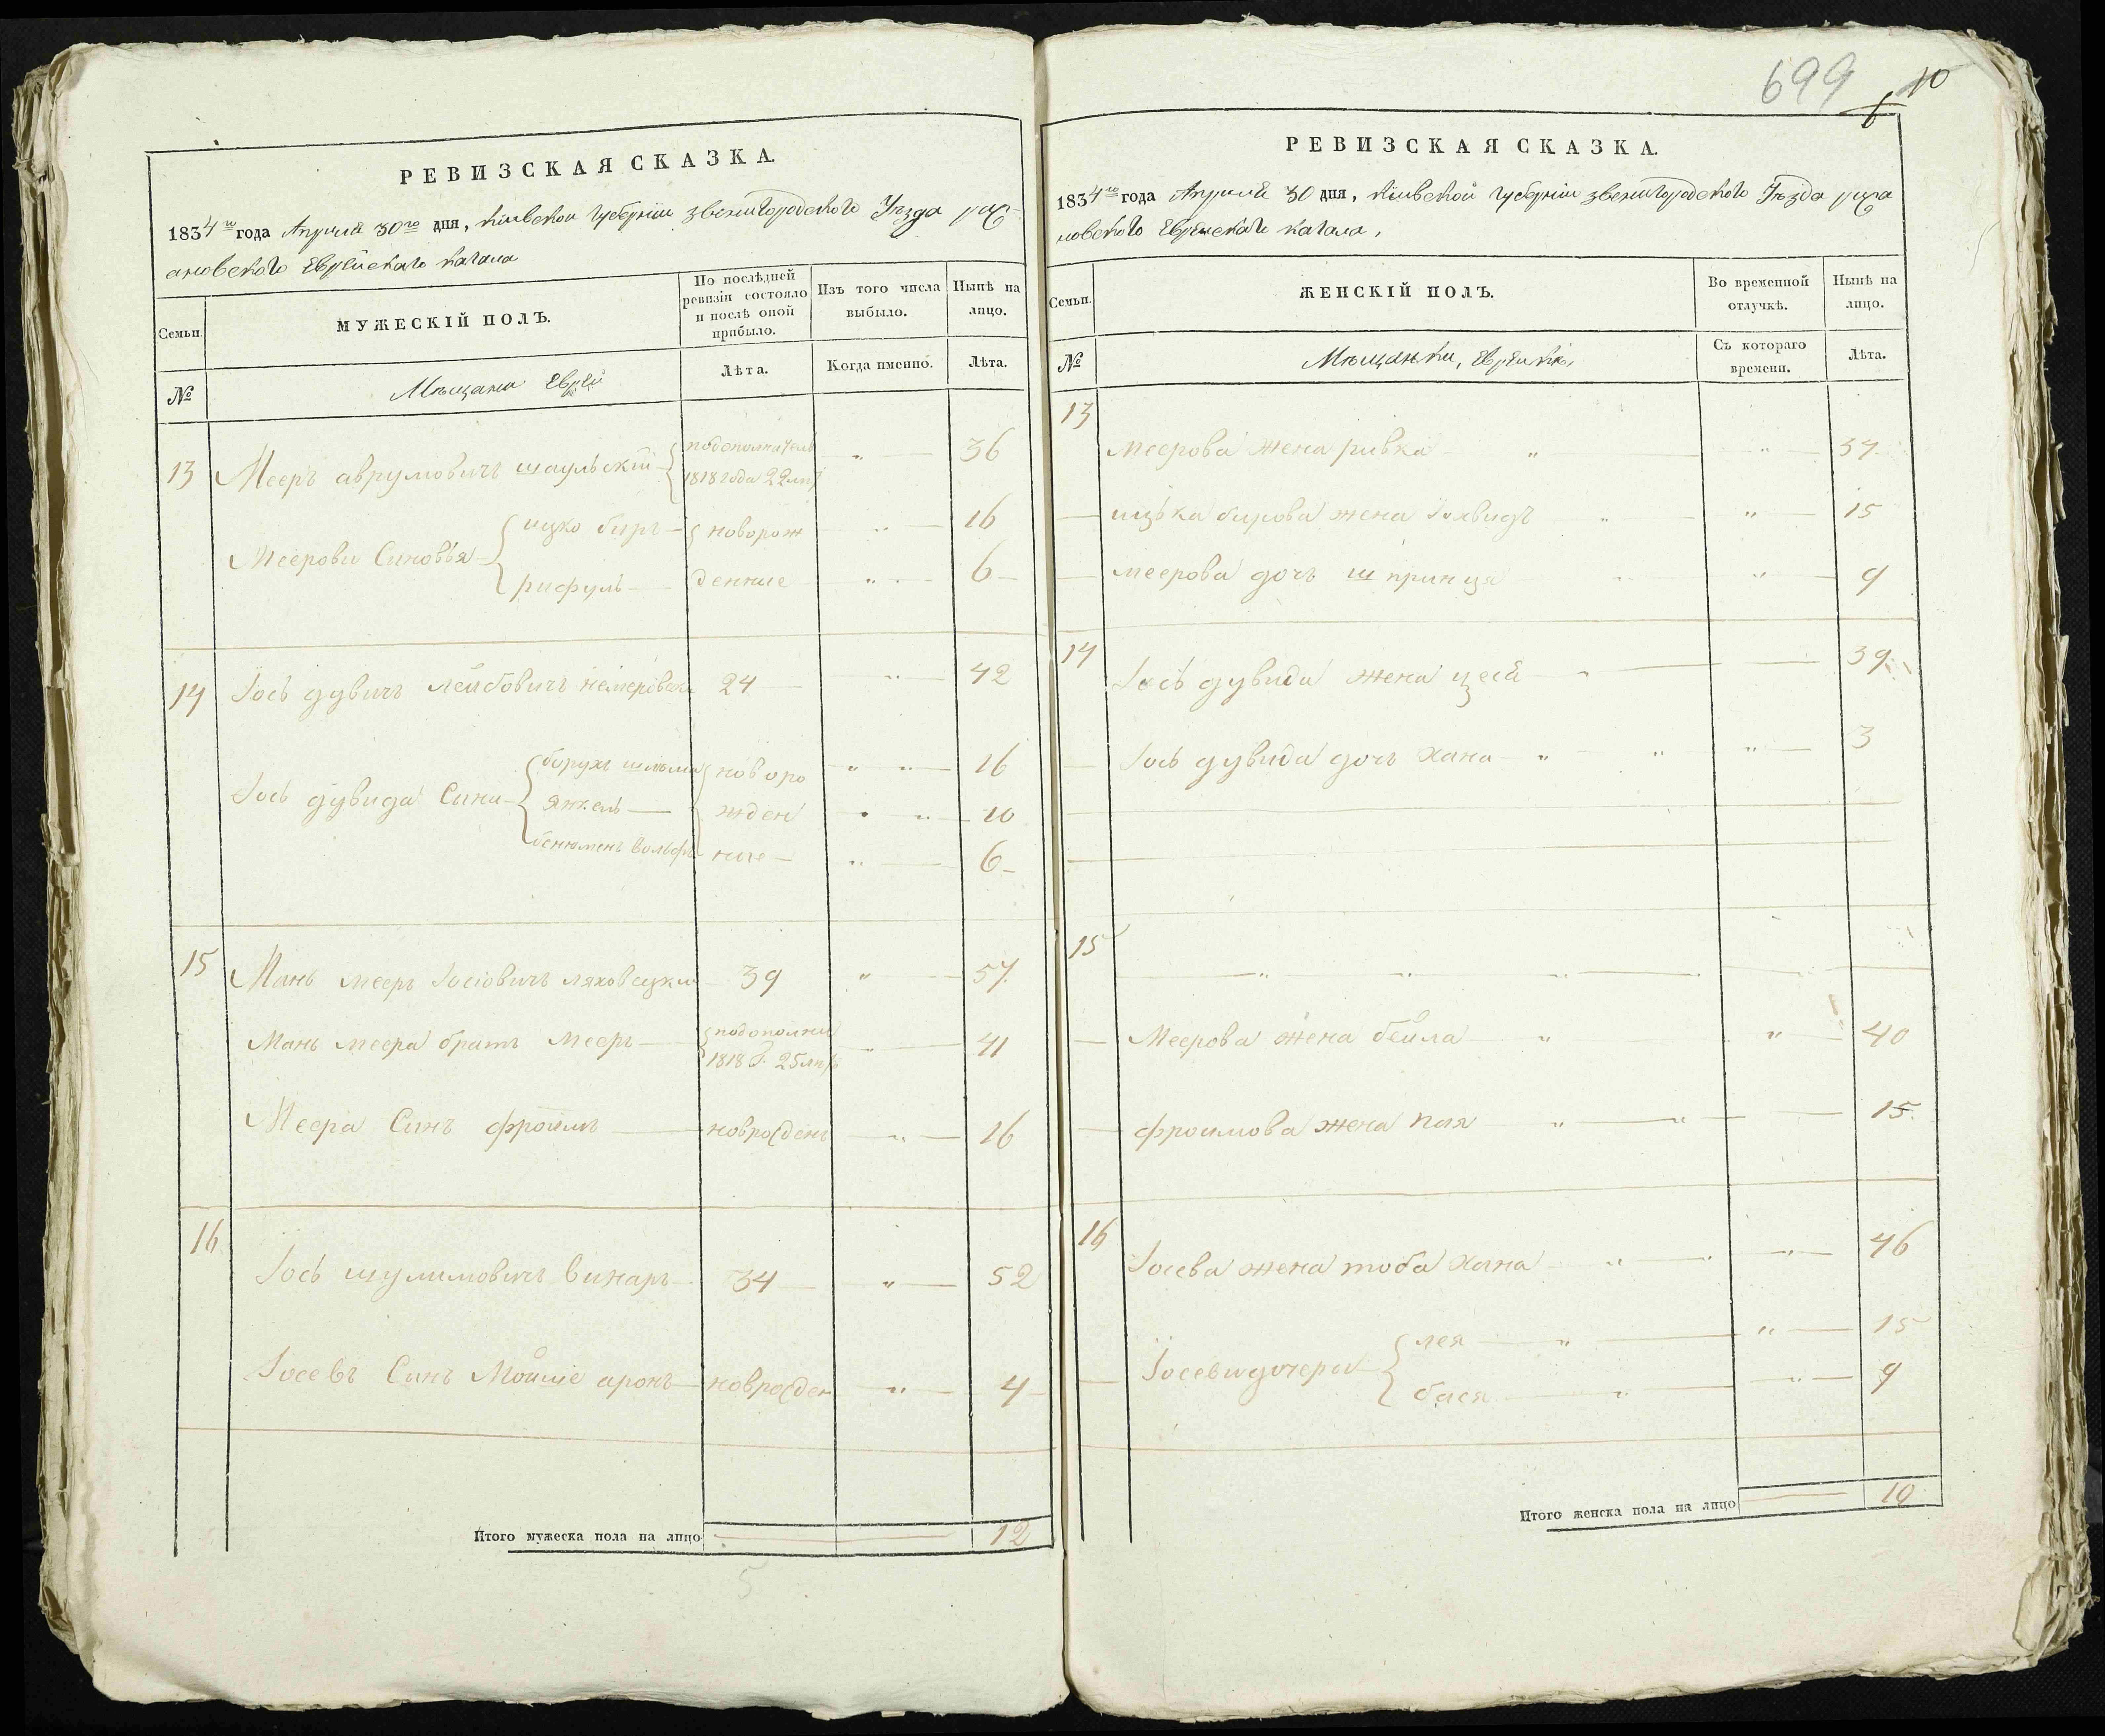 699 10
6
РЕВИЗСКАЯ СКАЗКА.
1834го года Апреля 30го дня, Кіевской Губерніи Звенигородского Уѣзда рыж-
ановского Еврейского Кагала
Семьи.
МУЖЕСКІЙ ПОЛЪ.
По послѣдней ревизіи состояло и послѣ оной прибыло.
Изъ того числа выбыло.
Нынѣ на лицо.
№
Мѣщане Евреи
Лѣта.
Когда именно.
Лѣта.
13 Мееръ аврумовичъ шаульскій { подополнитель 1818 года 22 лѣт „ 36
Меерови Синовья { ицко беръ { новорож „ 16
рифулъ денние „ 6
14 Іось дувидъ лейбовичъ 24 „ 42
Іось дувида Сини { борухъ шльома { новоро „ „ 16
Янкель жден „ „ 10
бенюменъ вольфъ ные „ 6
15 Мань мееръ Іосіовичъ ляховецки 39 „ 57
Мань меера братъ мееръ { подополни 1818 г. 25 лѣт „ 41
Меера Синъ фроимъ новрожденъ „ 16
16 Іось шулимовичъ винаръ 34 „ 52
Іосевъ Синъ Мойше аронъ новрожден „ 4
Итого мужеска пола на лицо 12
5
РЕВИЗСКАЯ СКАЗКА.
1834го года Апреля 30 дня, Кіевской Губерніи Звенигородского Уѣзда рыжа
новского Еврейскаго кагала,
Семьи.
ЖЕНСКІЙ ПОЛЪ.
Во временной отлучкѣ.
Нынѣ на лицо.
№
Мѣщанки, Еврейки,
Съ котораго времени.
Лѣта.
13 Меерова жена ривка „ „ 37
ицька бирова жена Іохвидъ „ „ 15
меерова дочь шпринця „ „ 9
14 Іось дувида жена цеся „ 39
Іось дувида дочь хана „ „ „ 3
15 „ „ „ „
Меерова жена бейла „ „ 40
фроимова жена пая „ „ 15
16 Іосева жена тоба хана „ „ 46
Іосеви дочери { лея „ „ 15
бася „ „ 9
Итого женска пола на лицо 10